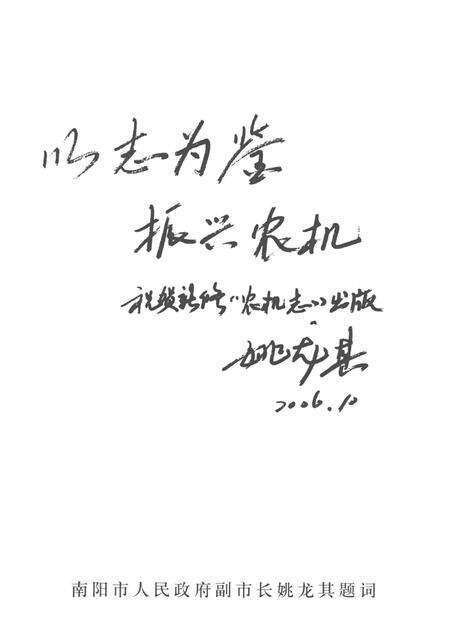 以志为鉴
振兴农机
祝新修《农机志》出版
姚龙其
2006.10
南阳市人民政府副市长姚龙其题词